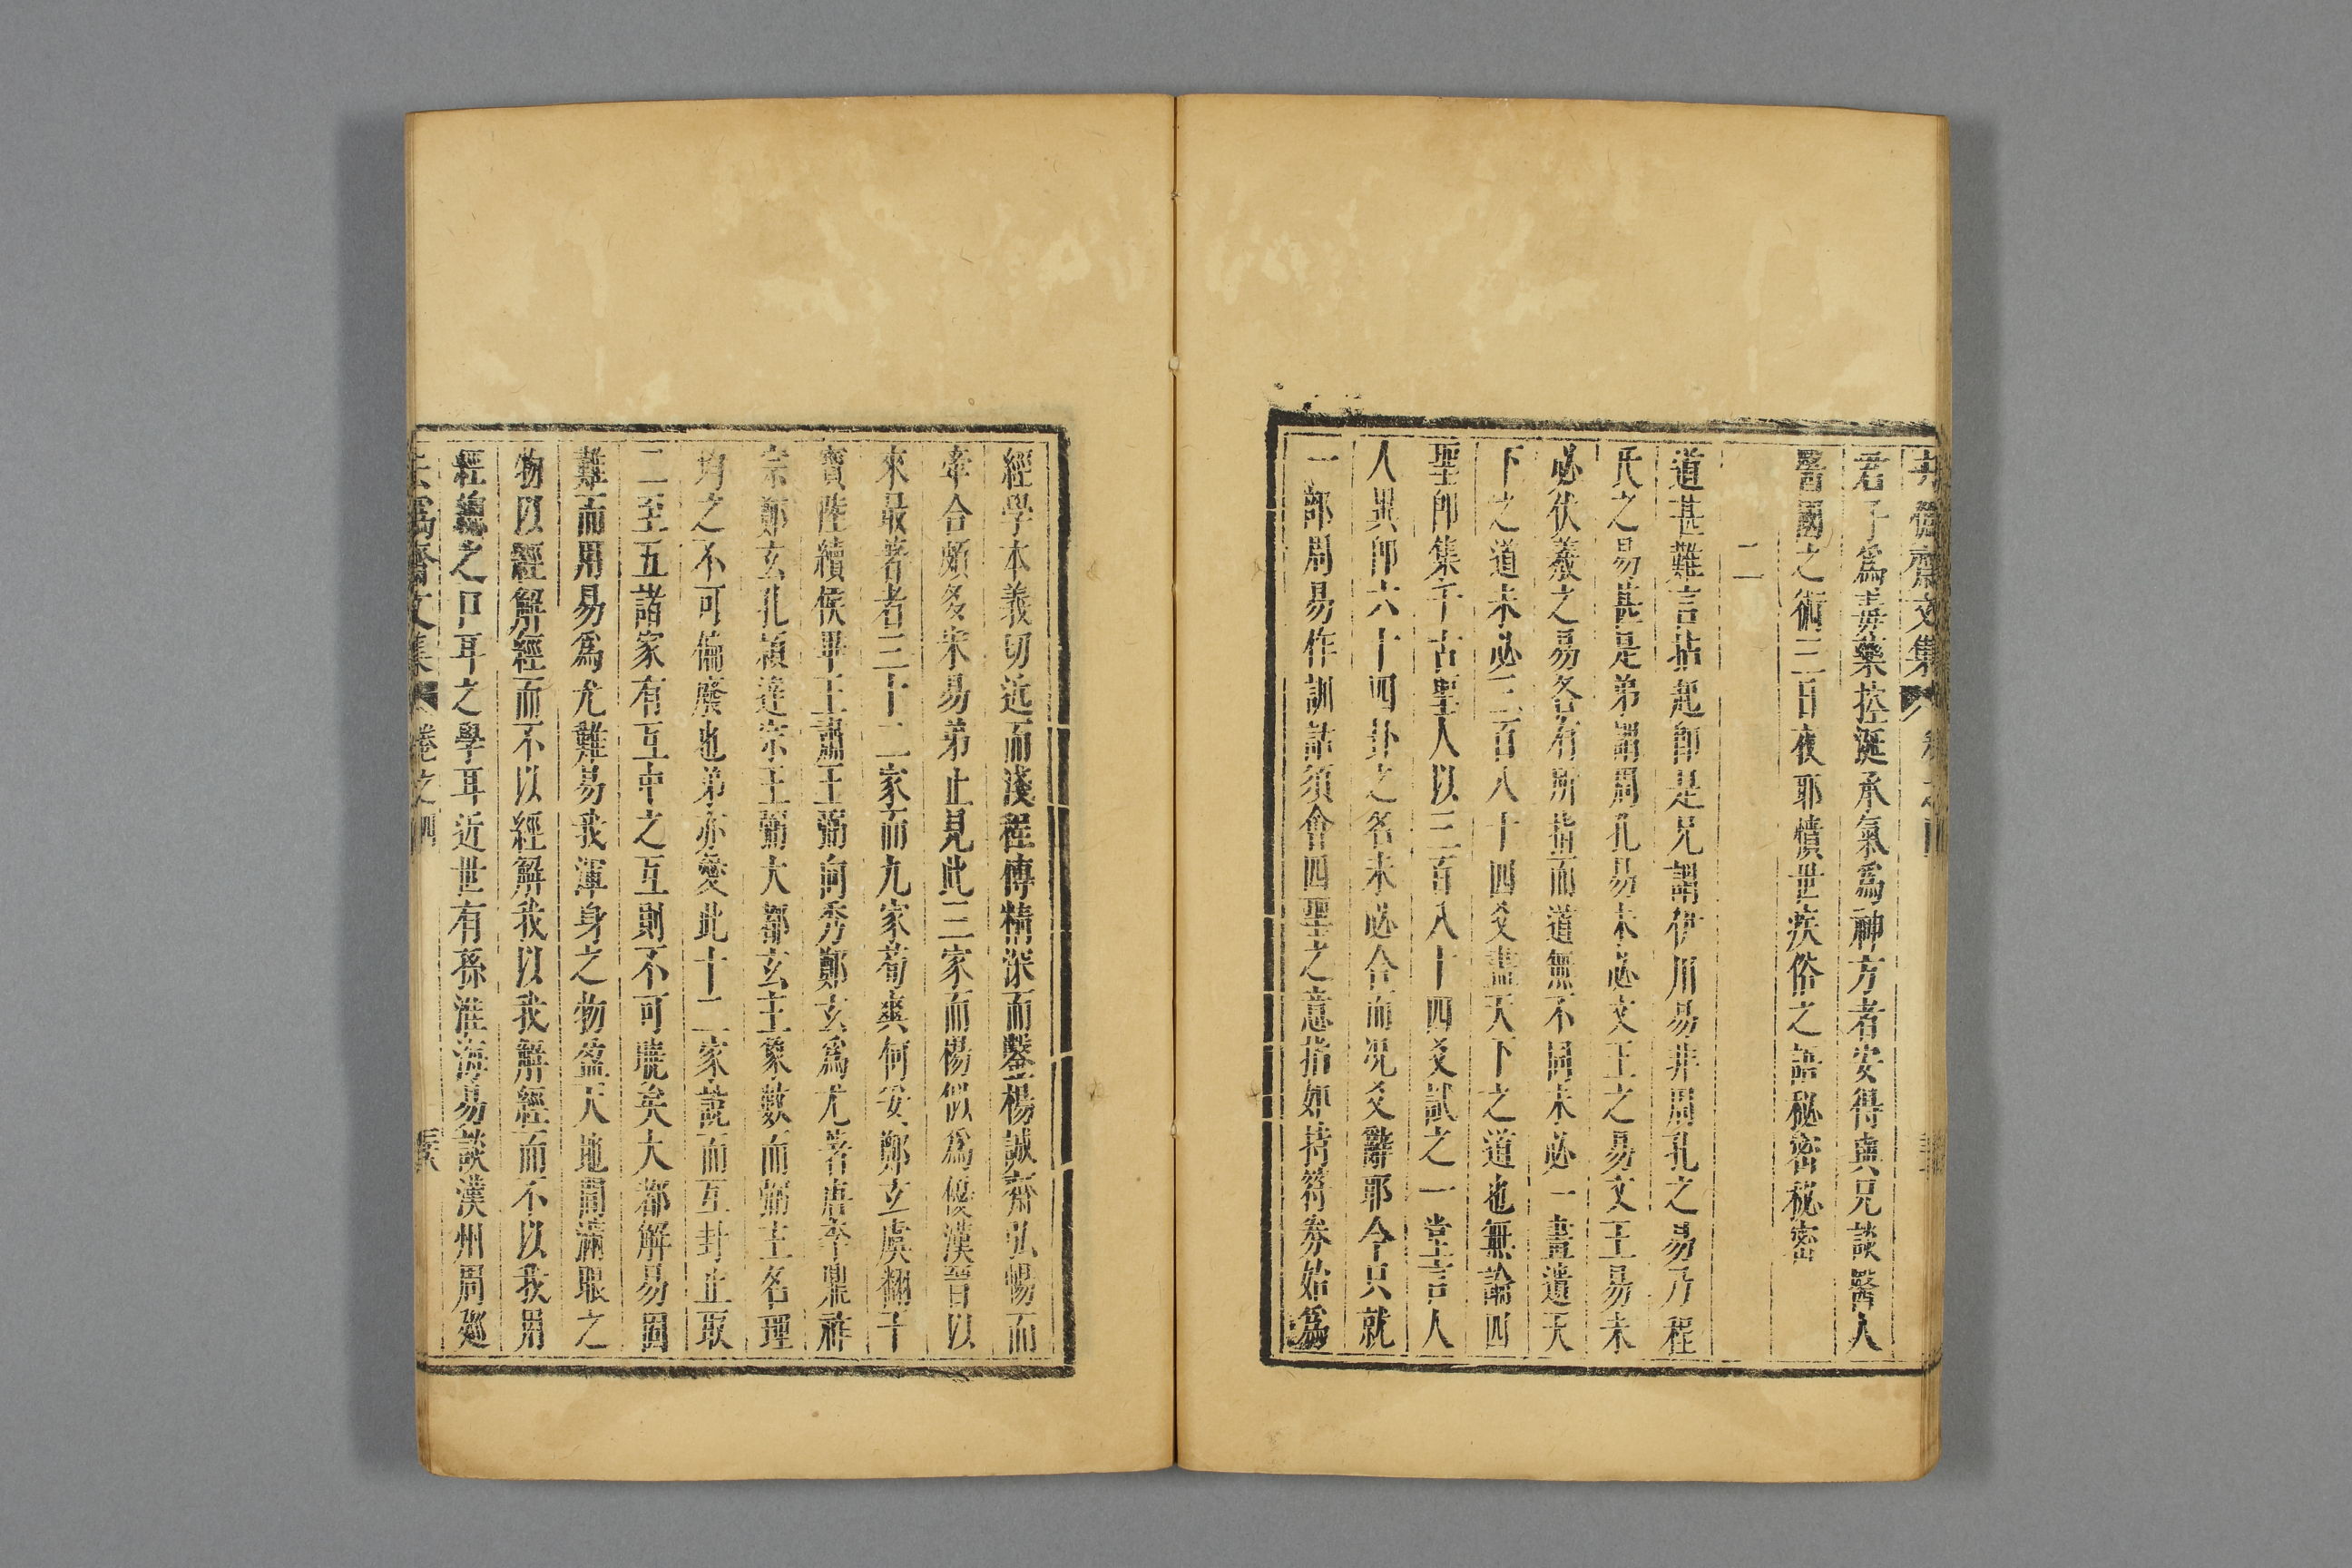 君子爲毒藥拴涎承氣爲神方者安得與兄談醫人
醫國之術三日夜耶憤世疾俗之語秘密秘密
二
道甚難言拈起卽是兄謂伊川易非周孔之易乃程
氏之易甚是弟謂周孔易未必文王之易文王易未
必伏羲之易各有所指而道無不同未必一畫遺天
下之道未必三百八十四爻盡天下之道也無論四
聖卽集千古聖人以三百八十四爻試之一堂言人
人異卽六十四卦之名未必合而况爻辭耶今只就
一部周易作訓詁須會四聖之意指如持符劵始爲
經學本義切近而淺程傳精深而鑿楊誠齋弘暢而
牽合頗多宋易弟止見此三家而楊似爲優漢晉以
來最著者三十二家而九家荀爽何妥鄭玄虞翻干
寶陸績侯果王肅王弼向秀鄭玄爲尤著唐李鼎祚
宗鄭玄孔穎達宗王弼大都玄主象數而弼主名理
均之不可偏廢也弟亦愛此十二家說而互卦止取
二至五諸家有互中之互則不可曉矣大都解易固
難而用易爲尤難易我渾身之物盈天地間滿眼之
物以經解經而不以經解我以我解經而不以我用
經總之口耳之學耳近世有孫淮海易談漢州周
文集 卷之四